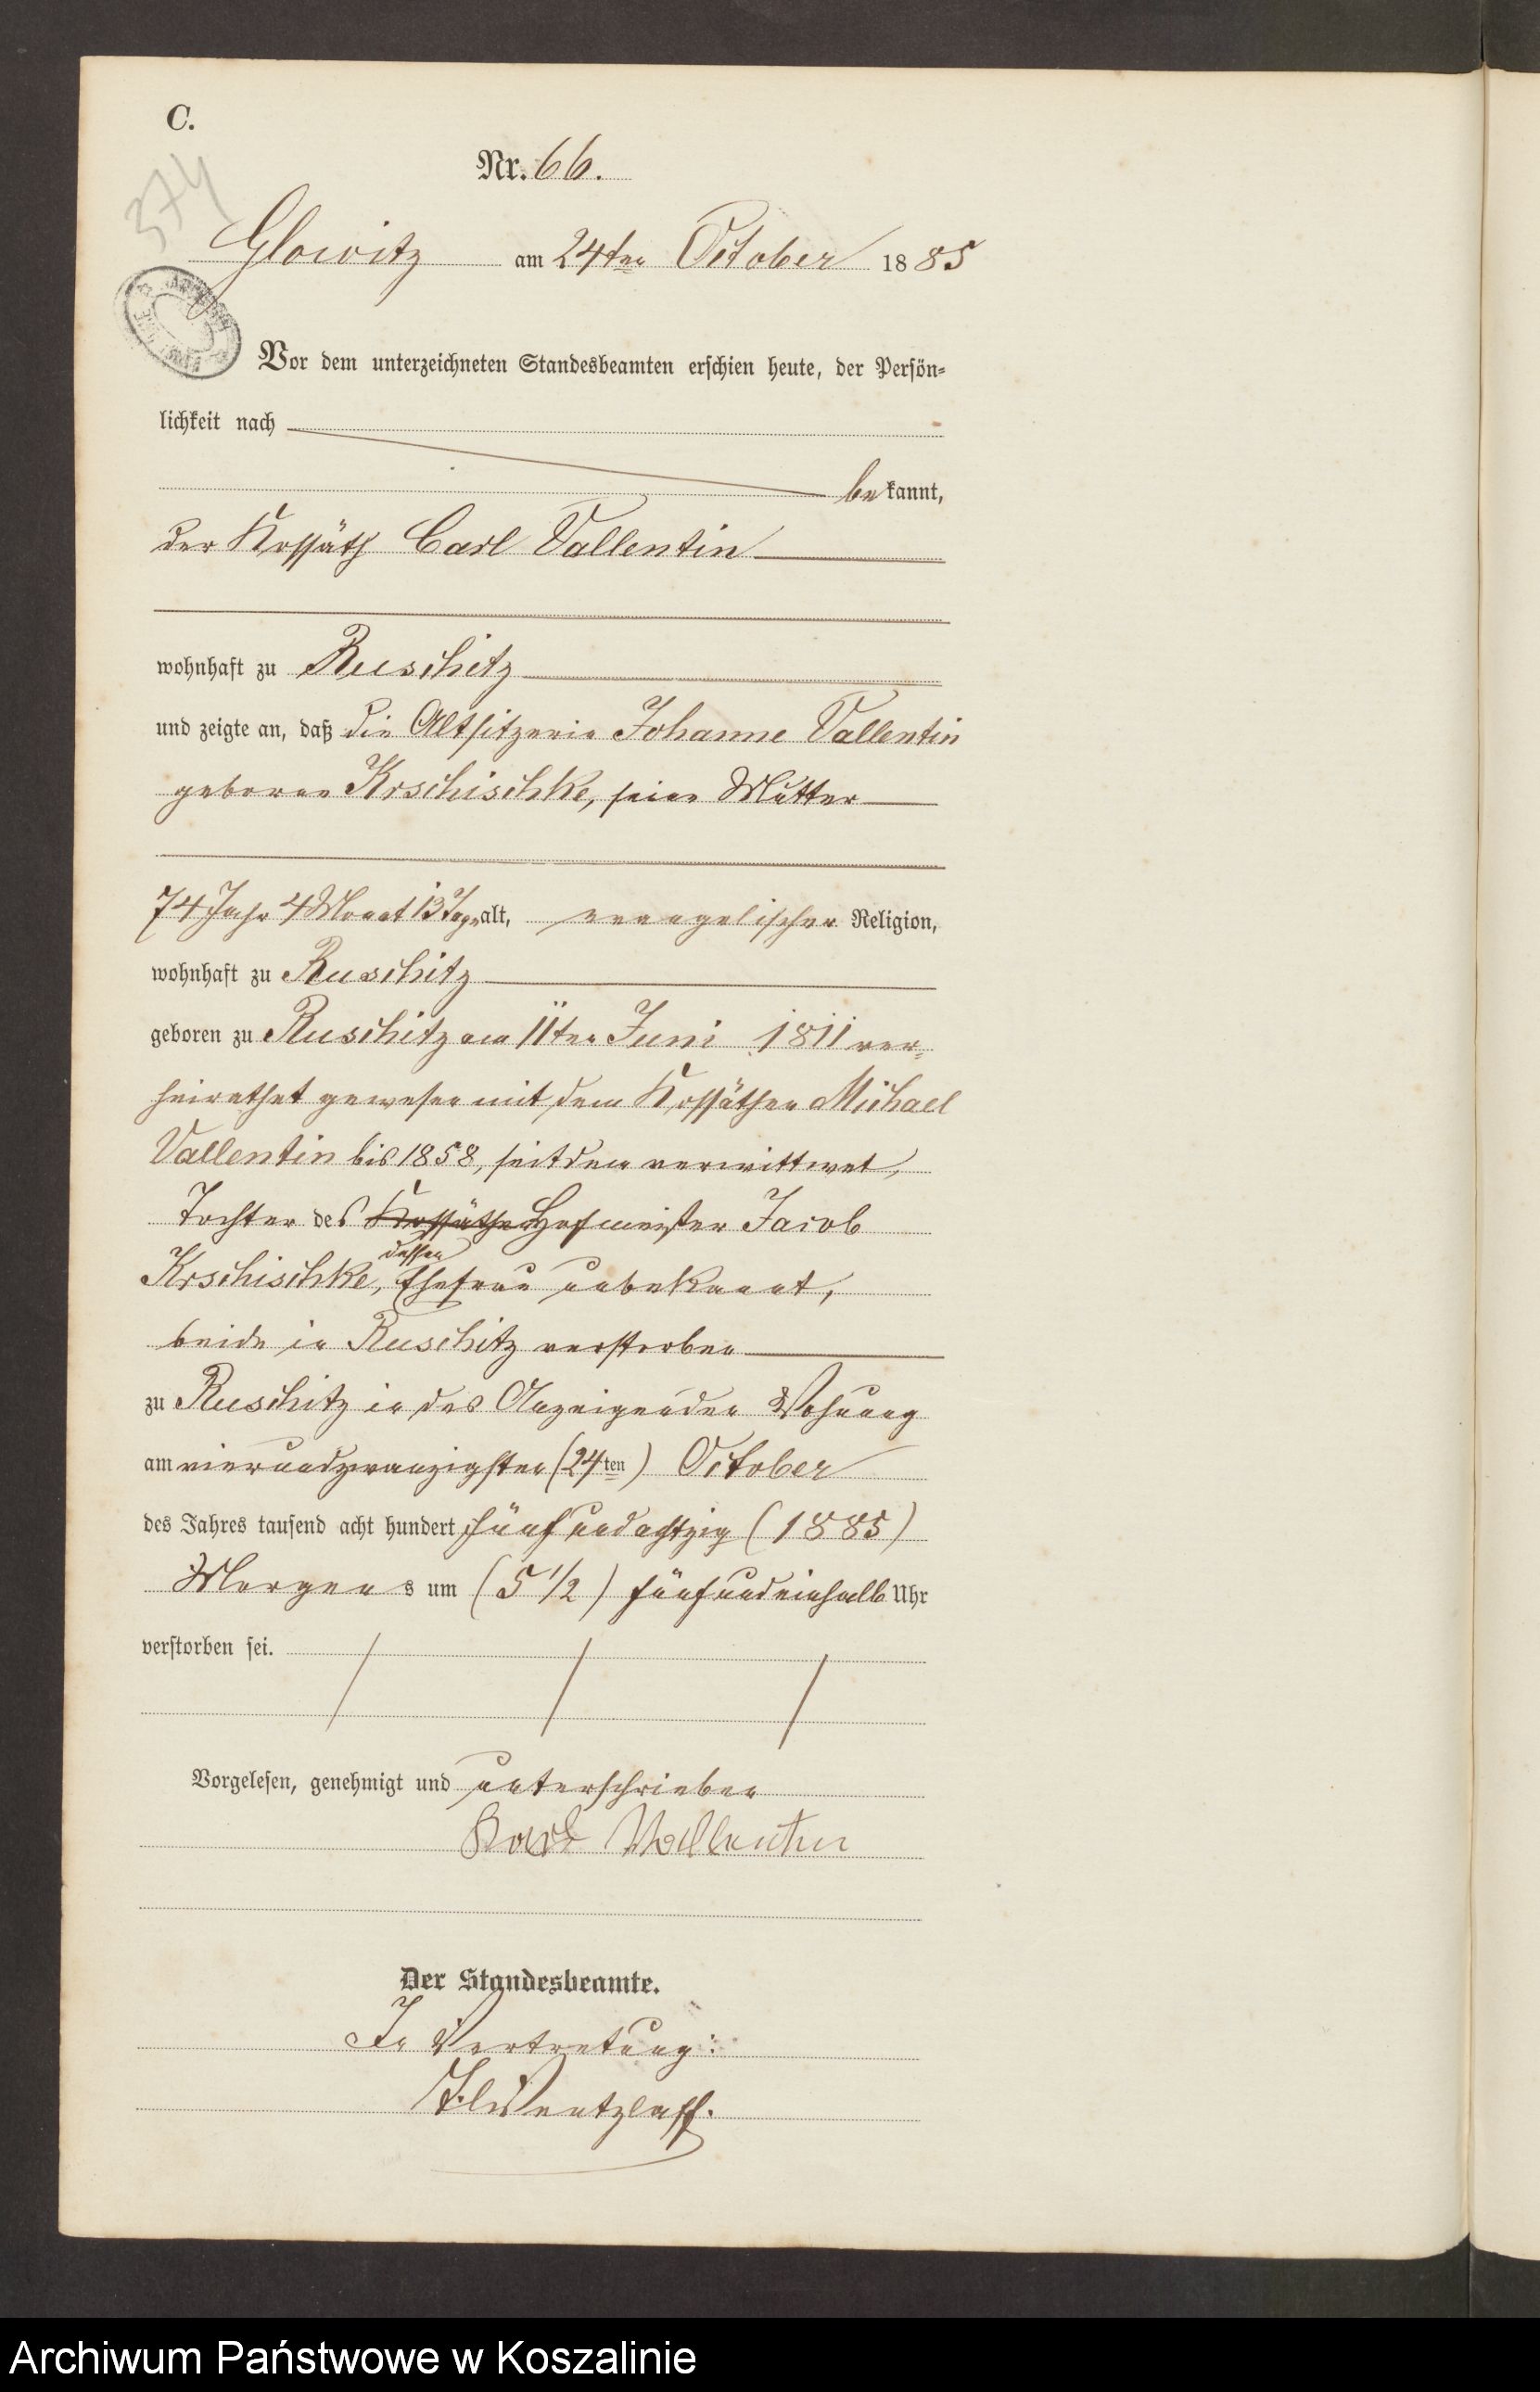 C.
Nr. 66.
374
Glowitz am 24ten October 1885
Vor dem unterzeichneten Standesbeamten erschien heute, der Persön-
lichkeit nach
bekannt,
der Kossäth Carl Vallentin
wohnhaft zu Ruschitz
und zeigte an, daß die Altsitzerin Johanne Vallentin
geborne Krschischke, seine Mutter
74 Jahr 4 Monat 13 Tage alt, evangelischer Religion,
wohnhaft zu Ruschitz
geboren zu Ruschitz am 11ten Juni 1811 ver-
heirathet gewesen mit dem Kossäthen Michael
Vallentin bis 1858, seitdem verwittwet,
Tochter des Kossäthen Hofmeister Jacob
Krschischke, dessen Ehefrau unbekannt,
beide in Ruschitz verstorben
zu Ruschitz in des Anzeigenden Wohnung
am vierundzwanzigsten (24ten) October
des Jahres tausend acht hundert fünf und achtzig (1885)
Morgens um (5 1/2) fünfundeinhalb Uhr
verstorben sei.
Vorgelesen, genehmigt und unterschrieben
Karl Vallentin
Der Standesbeamte.
In Vertretung:
Wentzlaff.
Archiwum Państwowe w Koszalinie